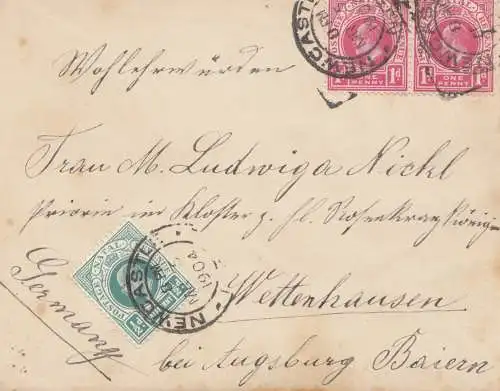 Wohlehrwürden
Frau M. Ludwiga Nickl
Priorin im Kloster z. hl. Rosenkranzkönigin
Wettenhausen
bei Augsburg Baiern
Germany
NEWCASTLE
1d ONE PENNY 1d
1d ONE PENNY 1d
NEWCASTLE
1904
POSTAGE NATAL REVENUE